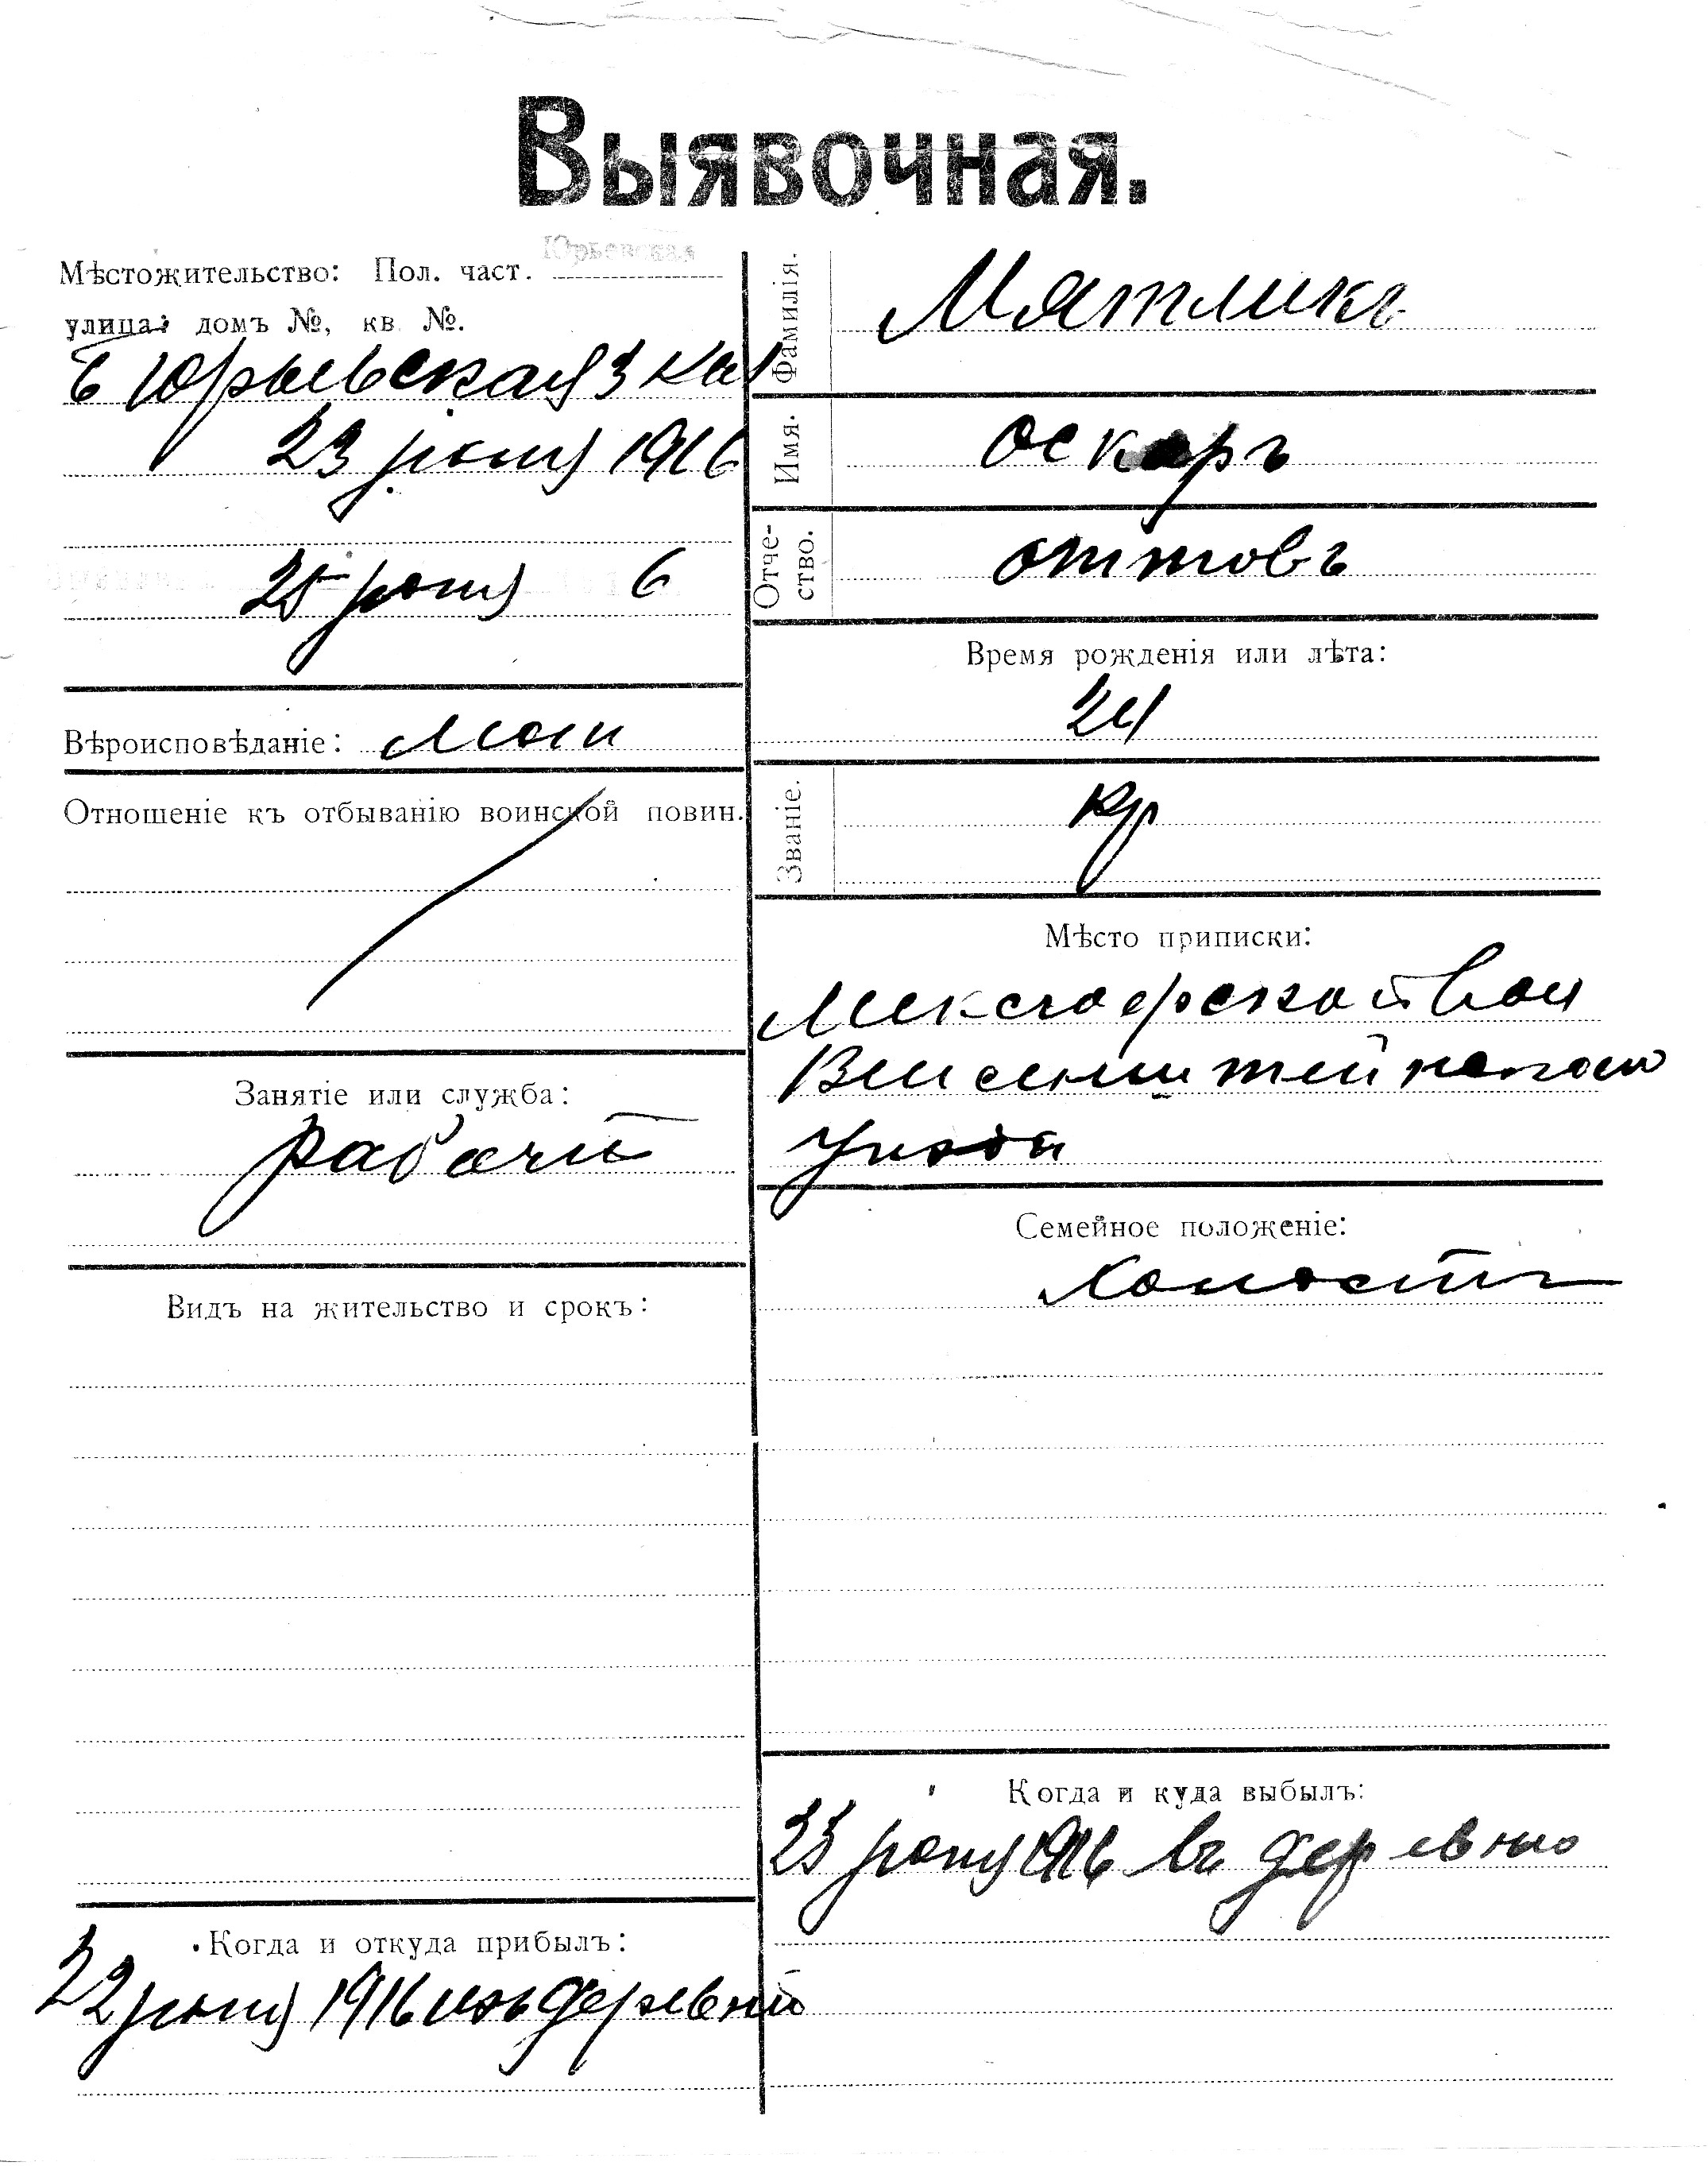 Выявочная.
Мѣстожительство: Пол. част. Юрьевская
улица: домъ №, кв. №.
Б Юрьевская 3 кв 1
23 июня 1916
25 июня 6
Вѣроисповѣданіе: Лют
Отношеніе къ отбыванію воинской повин.
Занятіе или служба:
рабочій
Видъ на жительство и срокъ:
Когда и откуда прибылъ:
22 июня 1916 изъ деревни
Фамилія. Мятликъ
Имя. Оскаръ
Отче-
ство. Оттовъ
Время рожденія или лѣта:
24
Званіе. кр
Мѣсто приписки:
Мексгофской вол
Вейсенштейнскаго
уѣзда
Семейное положеніе:
Холостъ
Когда и куда выбылъ:
25 июня 1916 въ деревню